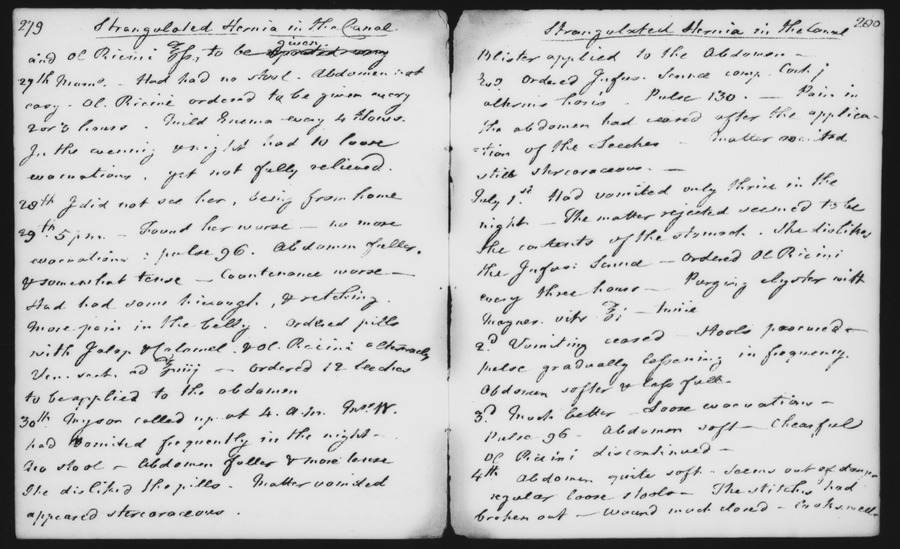 279 Strangulated Hernia in the Canal
and Ol Ricini ℥ſs, to be given
27th Morn. - Had had no stool. Abdomen not
easy. Ol. Ricini ordered to be given every
2 or 3 hours. Mild Enema every 4 Hours.
In the evening & night had 10 loose
evacuations, yet not fully relieved.
28th I did not see her, being from home
29th. 5 p.m. - Found her worse - no more
evacuations : pulse 96. Abdomen fuller,
& somewhat tense - Countenance worse -
Had had some hiccough, & retching.
More pain in the belly. Ordered pills
with Jalap & Calomel. & Ol. Ricini alternately
Ven. sect. ad ℥iiij - Ordered 12 leeches
to be applied to the abdomen
30th My son called up at 4. a.m. Mrs W.
had vomited frequently in the night -
No stool - Abdomen fuller & more tense
She disliked the pills. Matter vomited
appeared stercoraceous.
Strangulated Hernia in the Canal 280
Blister applied to the Abdomen -
Ordered Infus. Sennæ comp. Coch. j
alternis horis. Pulse 130. - Pain in
the abdomen had ceased after the applica-
-tion of the Leeches - Matter vomited
still stercoraceous. -
July 1st. Had vomited only thrice in the
night - The matter rejected seemed to be
the contents of the stomach. She dislikes
the Infus: Sennæ - Ordered Ol Ricini
every three hours - Purging clyster with
Magnes. vitr ℥i -
2d Vomiting ceased - Stools procured -
Pulse gradually lessening in frequency.
Abdomen softer & less full -
3d Much better - Loose evacuations -
Pulse 96 - Abdomen soft - Chearful
Ol Ricini discontinued -
4th Abdomen quite soft - Seems out of danger
regular loose stools - The stitches had
broken out - Wound much closed - Looks well -